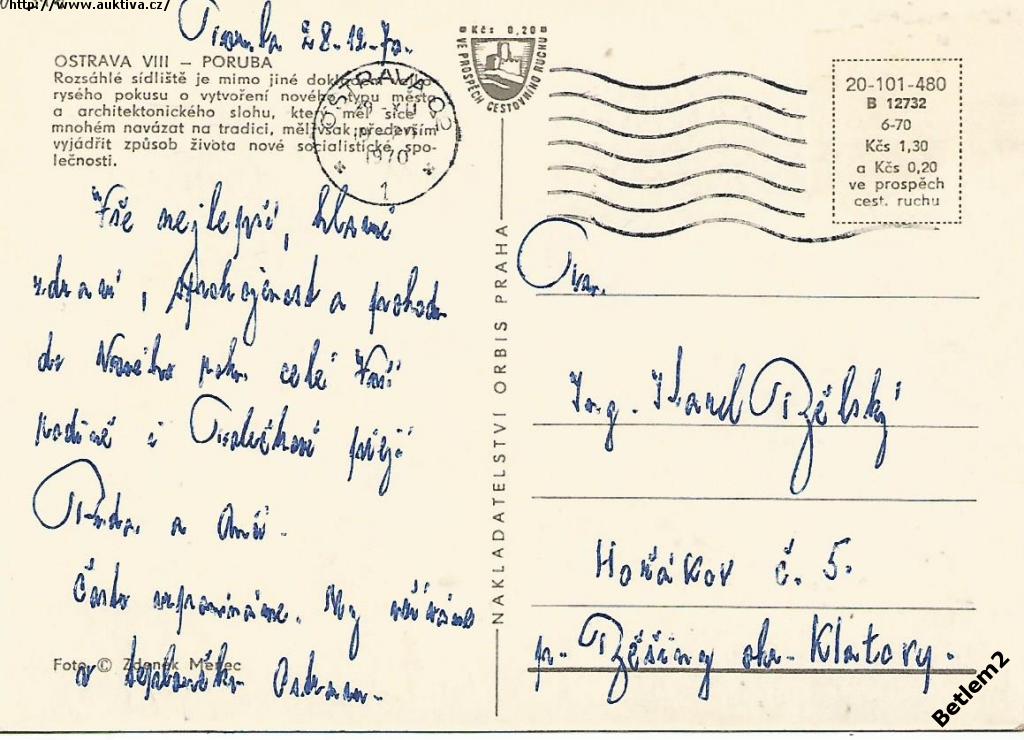 http://www.auktiva.cz/
28.12.70.
OSTRAVA VIII – PORUBA
Rozsáhlé sídliště je mimo jiné dokladem velko-
rysého pokusu o vytvoření nového typu města
a architektonického slohu, který měl sice v
mnohém navázat na tradici, měl však především
vyjádřit způsob života nové socialistické spo-
lečnosti.
OSTRAVA 02
28. XII
1970
1
Kčs 0,20
VE PROSPĚCH CESTOVNÍHO RUCHU
20-101-480
B 12732
6-70
Kčs 1,30
a Kčs 0,20
ve prospěch
cest. ruchu
Vše nejlepší, hlavně
zdraví, spokojenost a pohodu
do Nového roku celé Vaší
rodině i přejí
a
Často vzpomínáme. My
v
Foto © Zdeněk Menec
NAKLADATELSTVÍ ORBIS PRAHA
Ing. Karel
č. 5.
p. okr. Klatovy.
Betlem2